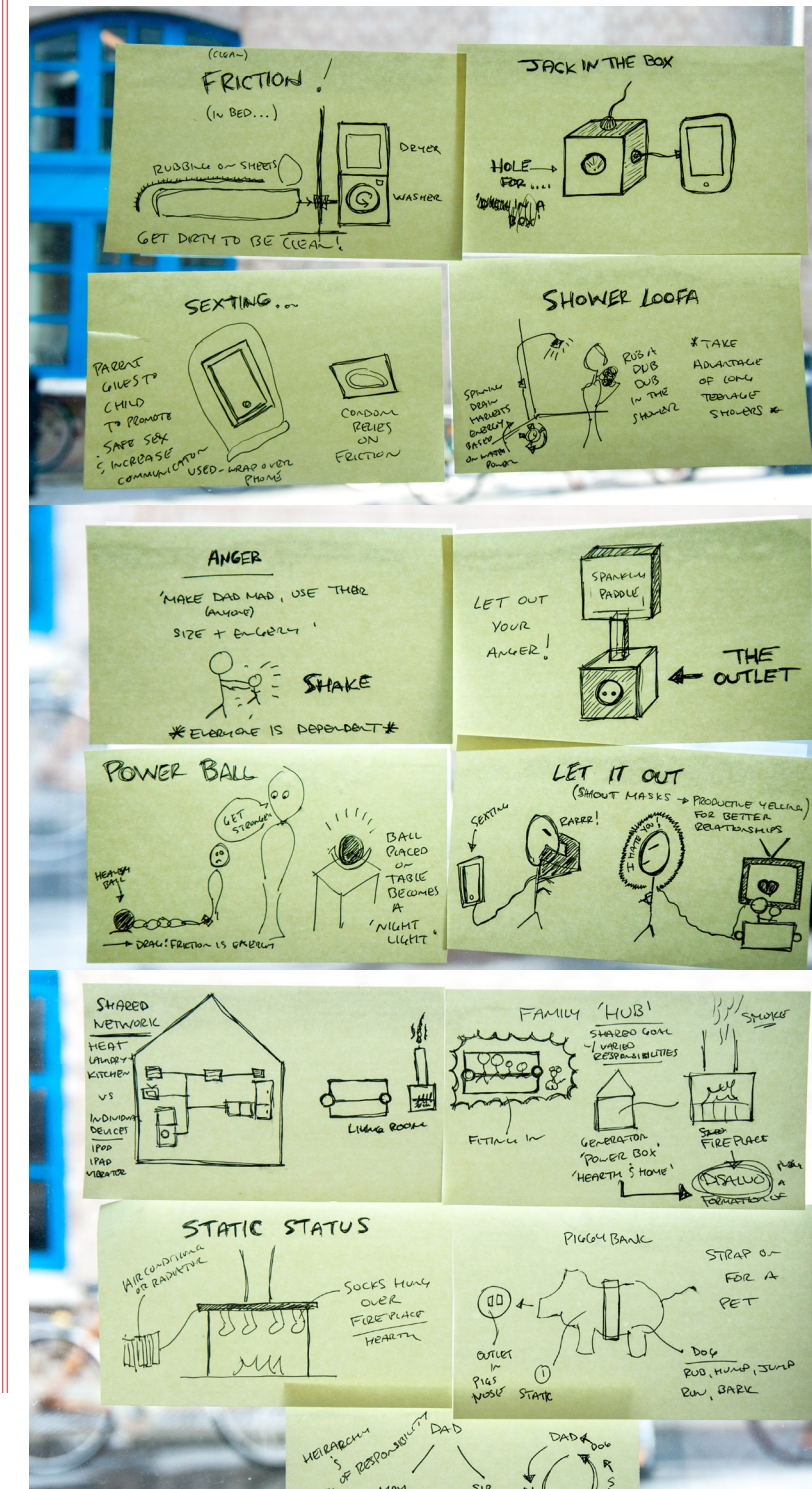 (CLEAN)
FRICTION!
(IN BED...)
RUBBING ON SHEETS
DRYER
WASHER
GET DIRTY TO BE CLEAN!
JACK IN THE BOX
HOLE
FOR....
IN A
BOX!
SEXTING...
PARENT
GIVES TO
CHILD
TO PROMOTE
SAFE SEX
& INCREASE
COMMUNICATION
USED - WRAP OVER
PHONE
CONDOM
RELIES
ON
FRICTION
SHOWER LOOFA
SPINNING
DRAIN
HARVESTS
ENERGY
BASED
ON WATER
POWER
RUB A
DUB
DUB
IN THE
SHOWER
* TAKE
ADVANTAGE
OF LONG
TEENAGE
SHOWERS *
ANGER
'MAKE DAD MAD, USE THEIR
(ANYONE)
SIZE + ENGERY'
SHAKE
* EVERYONE IS DEPENDENT *
LET OUT
YOUR
ANGER!
SPANKING
PADDLE
THE
OUTLET
POWER BALL
HEAVY
BALL
GET
STRONGER
→ DRAG: FRICTION IS ENERGY
BALL
PLACED
ON
TABLE
BECOMES
A
'NIGHT
LIGHT'
LET IT OUT
(SHOUT MASKS → PRODUCTIVE YELLING)
FOR BETTER
RELATIONSHIPS
SEXTING
RARRR!
I HATE YOU!
SHARED
NETWORK
HEAT
LAUNDRY
KITCHEN
VS
INDIVIDUAL
DEVICES
IPOD
IPAD
VIBRATOR
LIVING ROOM
FAMILY 'HUB'
SHARED GOAL
w/ VARIED
RESPONSIBILITIES
SMOKE
FITTING IN
GENERATOR
'POWER BOX'
'HEARTH & HOME'
FIREPLACE
A
FORMATION OF
STATIC STATUS
AIR CONDITIONING
OR RADIATOR
SOCKS HUNG
OVER
FIREPLACE
HEARTH
PIGGY BANK
STRAP ON
FOR A
PET
OUTLET
IN
PIGS
NOSE
STATIC
DOG
RUB, HUMP, JUMP
RUN, BARK
HEIRARCHY
&
OF RESPONSIBILITY
DAD
DAD
DOG
SIB
S